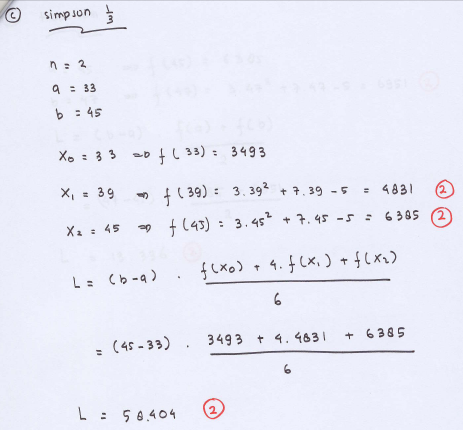 ⓒ simpson 1/3
n = 2
a = 33
b = 45
X₀ = 33 ⇒ f(33) = 3493
X₁ = 39 ⇒ f(39) = 3.39² + 7.39 - 5 = 4831 ②
X₂ = 45 ⇒ f(45) = 3.45² + 7.45 - 5 = 6385 ②
L = (b-a) . f(x₀) + 4.f(x₁) + f(x₂)
6
= (45-33) . 3493 + 4.4831 + 6385
6
L = 58.404 ②